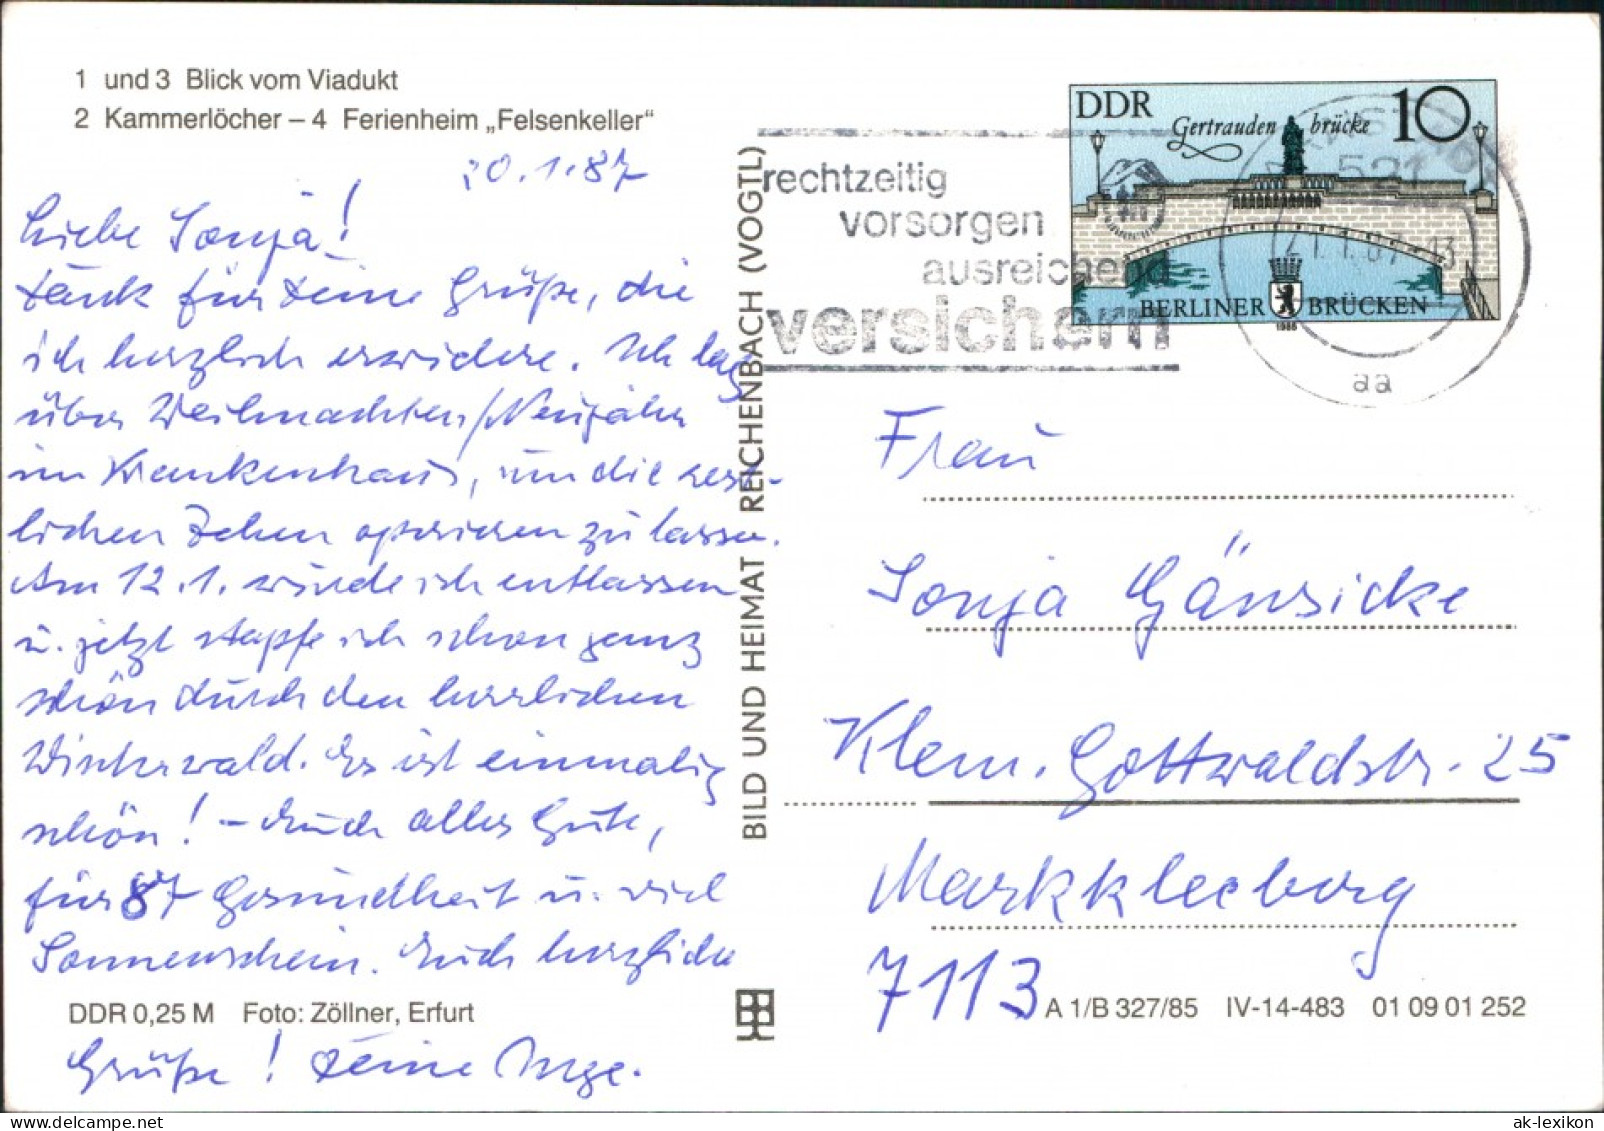 1 und 3 Blick vom Viadukt
2 Kammerlöcher – 4 Ferienheim „Felsenkeller“
20.1.87
Liebe Sonja!
Dank für Deine Grüße, die
ich herzlich erwidere. Ich lag
über Weihnachten/Neujahr
im Krankenhaus, um die rest-
lichen Zehen operieren zu lassen.
Am 12.1. wurde ich entlassen
u. jetzt stapfe ich schon ganz
schön durch den herrlichen
Winterwald. Es ist einmalig
schön! – Euch alles Gute,
für 87 Gesundheit u. viel
Sonnenschein. Euch herzliche
DDR 0,25 M Foto: Zöllner, Erfurt
Grüße! Deine Inge.
BILD UND HEIMAT REICHENBACH (VOGTL)
rechtzeitig
vorsorgen
ausreichend
versichern
DDR 10
Gertrauden brücke
BERLINER BRÜCKEN
1986
521
21.1.87
aa
Frau
Sonja Gänsicke
Klem. Gottwaldstr. 25
Markkleeberg
7113
A 1/B 327/85 IV-14-483 01 09 01 252
ak-lexikon